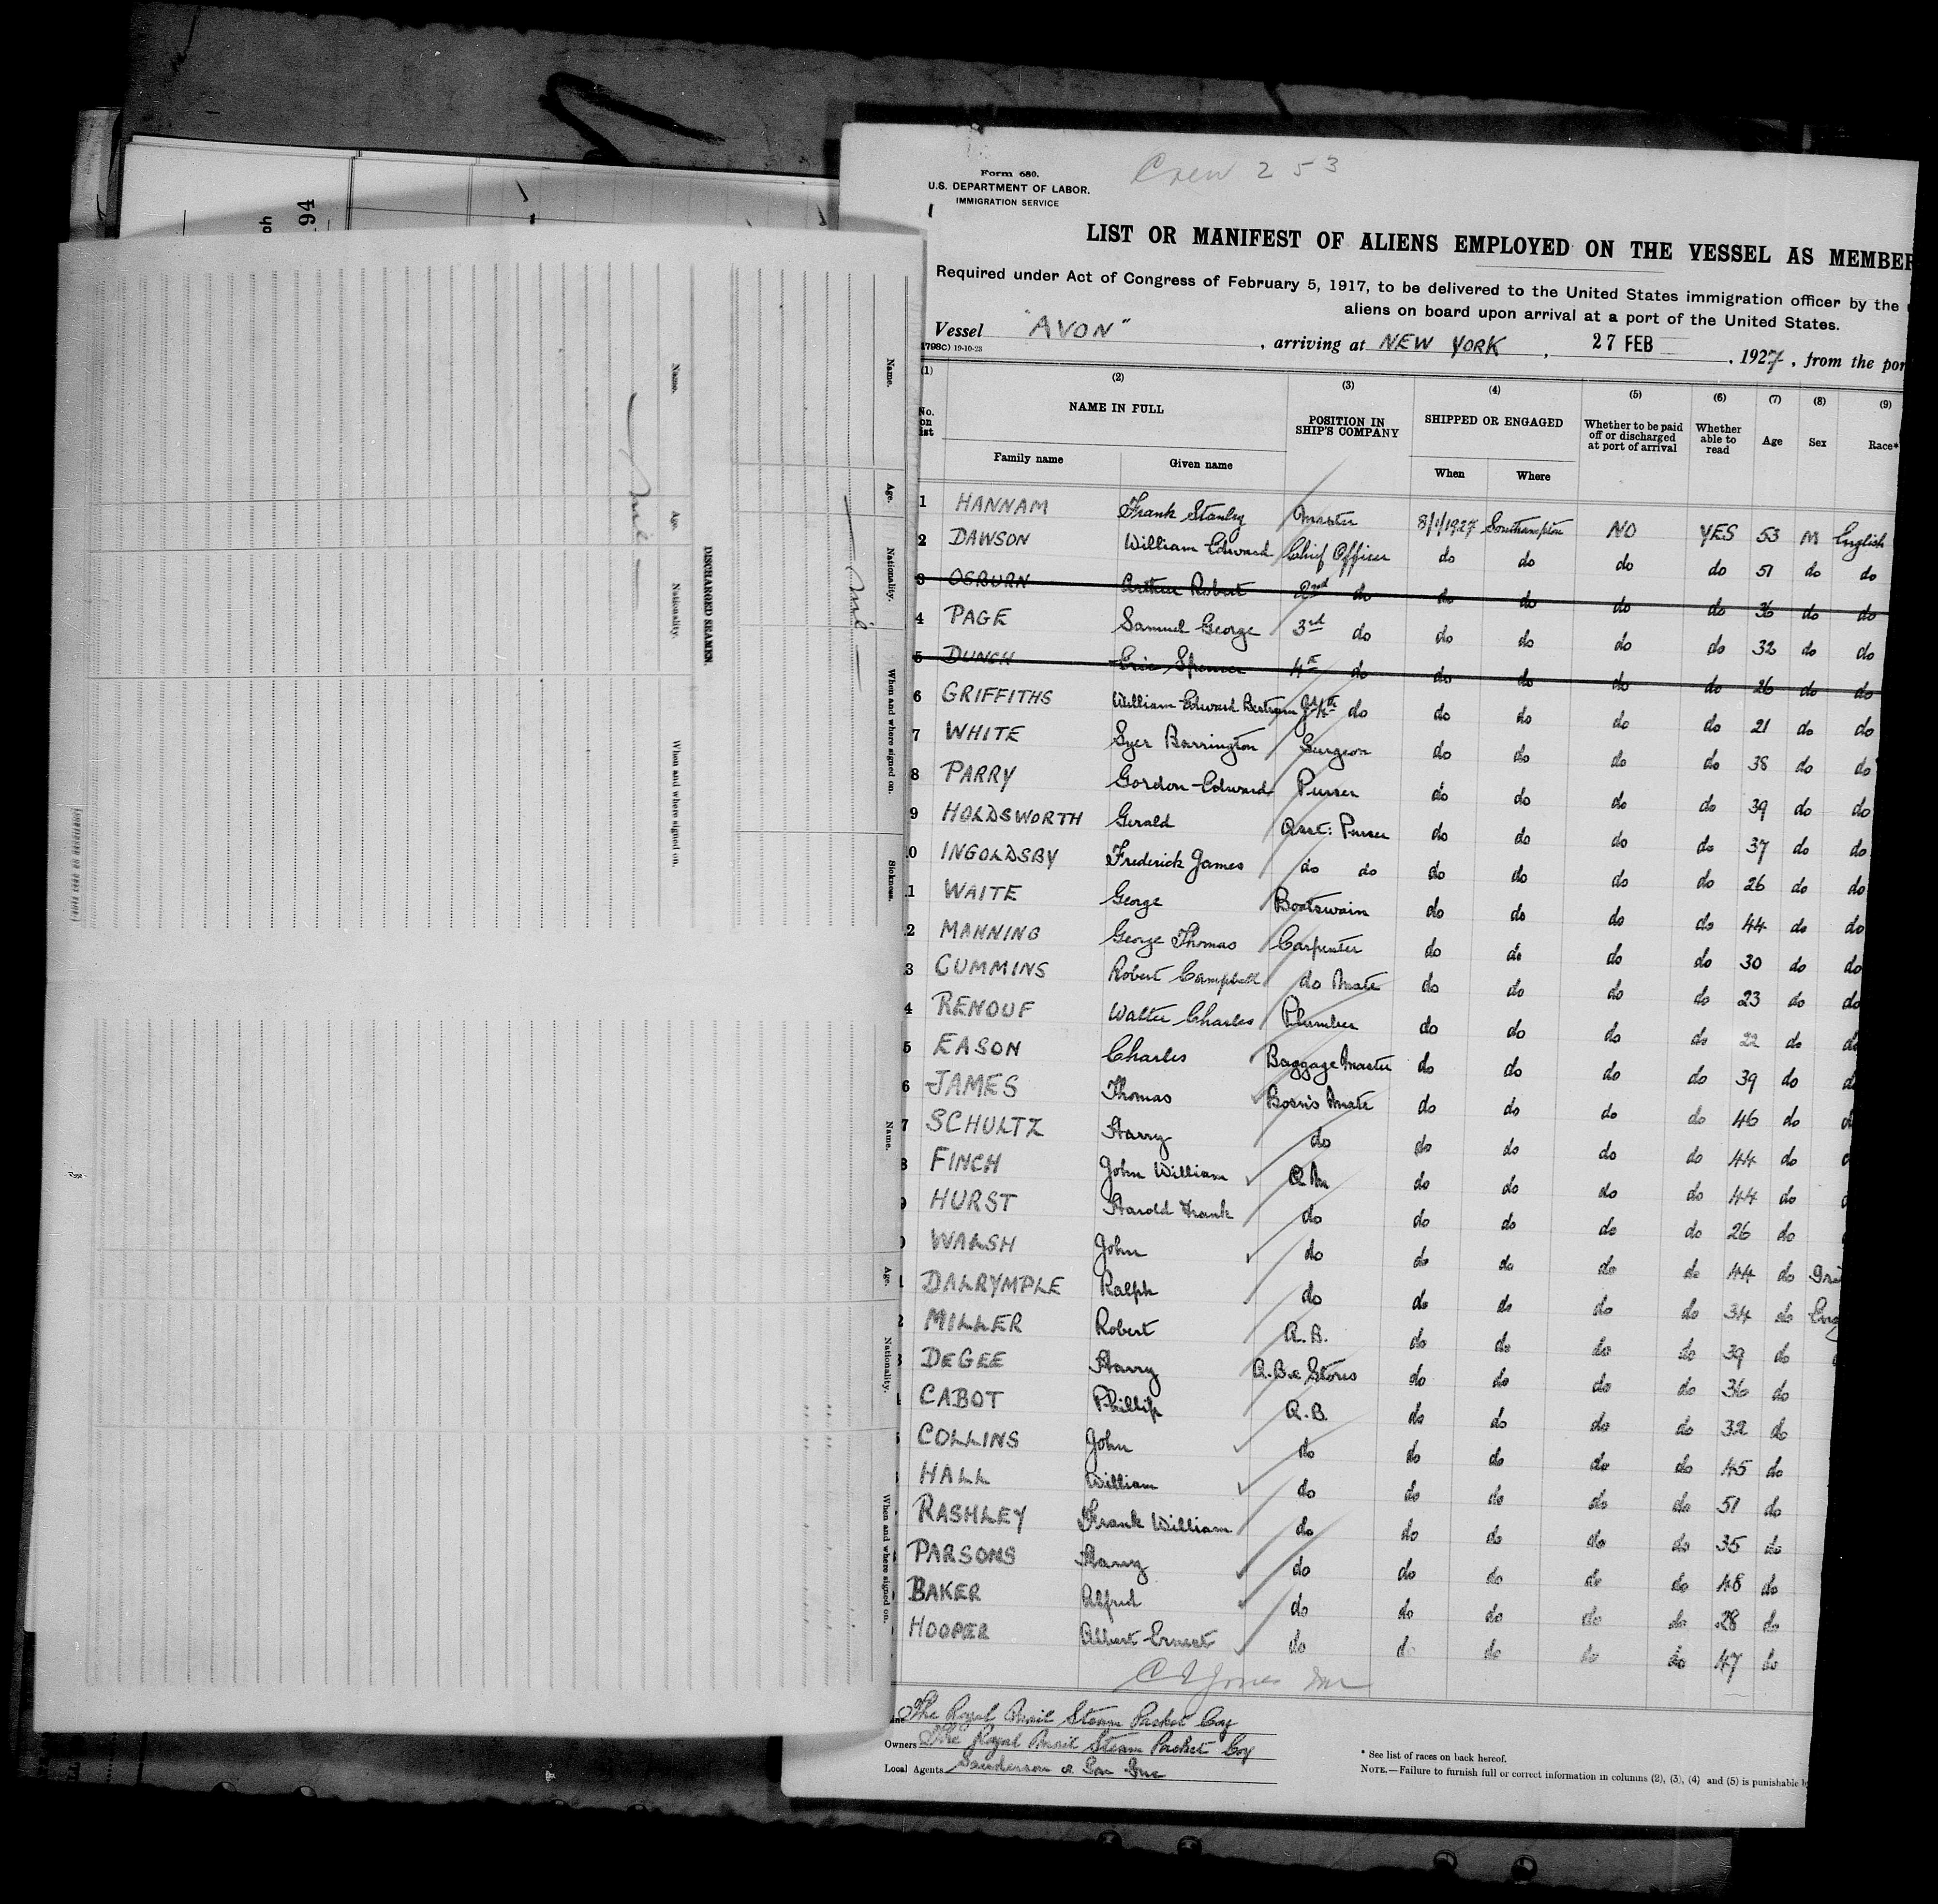 Form 680.
U.S. DEPARTMENT OF LABOR.
IMMIGRATION SERVICE
Crew 253
LIST OR MANIFEST OF ALIENS EMPLOYED ON THE VESSEL AS MEMBER
Required under Act of Congress of February 5, 1917, to be delivered to the United States immigration officer by the
aliens on board upon arrival at a port of the United States.
Vessel "AVON" , arriving at NEW YORK , 27 FEB , 1927 , from the por
1798C) 19-10-23
(1) (2) (3) (4) (5) (6) (7) (8) (9)
No. on list NAME IN FULL POSITION IN SHIP'S COMPANY SHIPPED OR ENGAGED Whether to be paid off or discharged at port of arrival Whether able to read Age Sex Race*
Family name Given name When Where
1 HANNAM Frank Stanley Master 8/1/1927 Southampton NO YES 53 M English
2 DAWSON William Edward Chief Officer do do do do 51 do do
3 OSBURN Arthur Robert 2nd do do do do do 36 do do
4 PAGE Samuel George 3rd do do do do do 32 do do
5 DUNCH Eric Spencer 4th do do do do do 26 do do
6 GRIFFITHS William Edward Bertram 4th do do do do do 21 do do
7 WHITE Syer Barrington Surgeon do do do do 38 do do
8 PARRY Gordon-Edward Purser do do do do 39 do do
9 HOLDSWORTH Gerald Asst: Purser do do do do 37 do do
0 INGOLDSBY Frederick James do do do do do do 26 do do
1 WAITE George Boatswain do do do do 44 do do
2 MANNING George Thomas Carpenter do do do do 30 do do
3 CUMMINS Robert Campbell do Mate do do do do 23 do do
4 RENOUF Walter Charles Plumber do do do do 22 do do
5 EASON Charles Baggage Master do do do do 39 do d
6 JAMES Thomas Bosn's Mate do do do do 46 do d
7 SCHULTZ Harry do do do do do 44 do
8 FINCH John William Q M do do do do 44 do
HURST Harold Frank do do do do do 26 do
WALSH John do do do do do 44 do Iri
DALRYMPLE Ralph do do do do do 34 do Eng
2 MILLER Robert A.B. do do do do 39 do
DEGEE Harry A.B.& Stores do do do do 36 do
CABOT Phillip A.B. do do do do 32 do
COLLINS John do do do do do 45 do
HALL William do do do do do 51 do
RASHLEY Frank William do do do do do 35 do
PARSONS Harry do do do do do 48 do
BAKER Alfred do do do do do 28 do
HOOPER Albert Ernest do do do do do 47 do
The Royal Mail Steam Packet Coy
Owners The Royal Mail Steam Packet Coy
Local Agents Sanderson & Son Inc
* See list of races on back hereof.
NOTE.—Failure to furnish full or correct information in columns (2), (3), (4) and (5) is punishable
94
Name. Age. Nationality. When and where signed on. Sickness.
Nil
DISCHARGED SEAMEN.
Name. Age. Nationality. When and where signed on.
Nil
Name. Age. Nationality. When and where signed on.